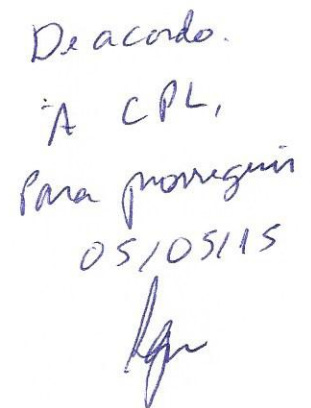 De acordo.
À CPL,
Para prosseguir
05/05/15